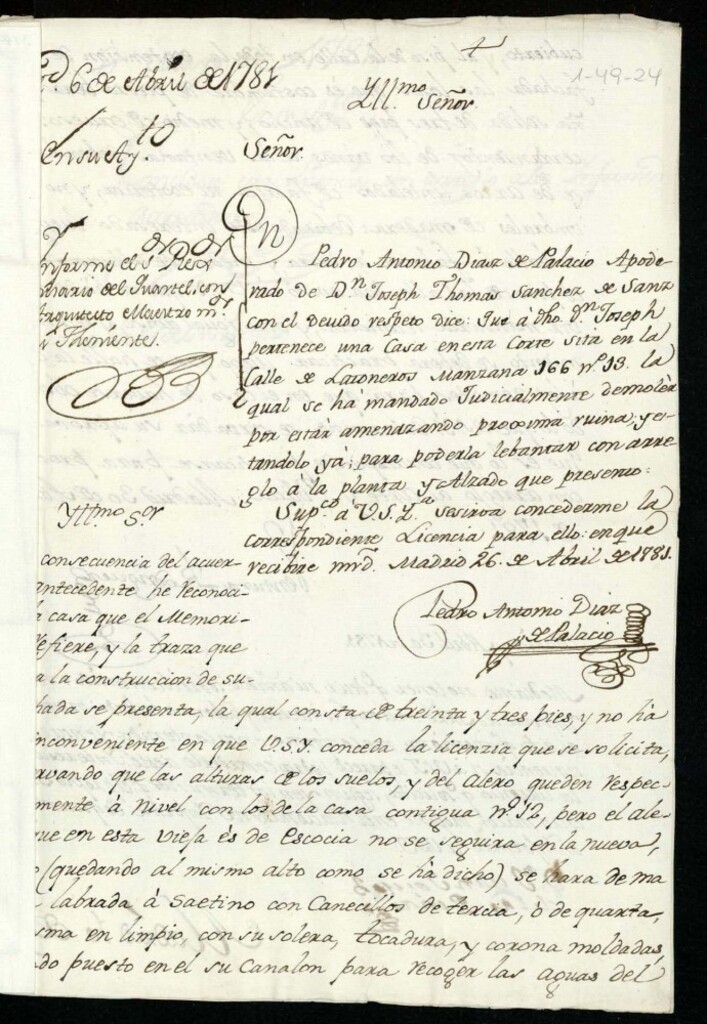 d 6 de Abril de 1781
1-49-24
Yllmo
Señor.
En su Ay.to
Señor.
Ynforme el Sr Regr
misario del Quartel, con
Arquitecto Maestro mor
Theniente.
Dn Pedro Antonio Diaz de Palacio Apode-
rado de Dn Joseph Thomas Sanchez de Sanz
con el devido respeto dice: Que à dho. Dn Joseph
pertenece una Casa en esta Corte sita en la
Calle de Latoneros Manzana 166 nº 13. la
qual se há mandado Judicialmente demolèr
por estàr amenazando proxima ruina; y es-
tandolo yà; para poderla lebantar con arre-
glo à la planta y Alzado que presento:
Supca à V.S.Y.a se sirva concederme la
correspondiente Licencia para ello: en que
recibire mrd. Madrid 26. de Abril de 1781.
Pedro Antonio Diaz
de Palacio
Yllmo Sor
consecuencia del acuer-
antecedente he reconoci-
casa que el Memori-
refiere, y la traza que
a la construccion de su
hada se presenta, la qual consta de treinta y tres pies, y no ha
inconveniente en que V.S.Y. conceda la licenzia que se solicita,
rvando que las alturas de los suelos, y del alero queden respec-
mente à nivel con los de la casa contigua nº 12, pero el ale-
que en esta vieja és de Escocia no se seguira en la nueva,
(quedando al mismo alto como se há dicho) se hara de ma
labrada à Saetino con Canecillos de tercia, ò de quarta,
sma en limpio, con su solera, tocadura, y corona moldadas,
do puesto en el su Canalon para recoger las aguas del